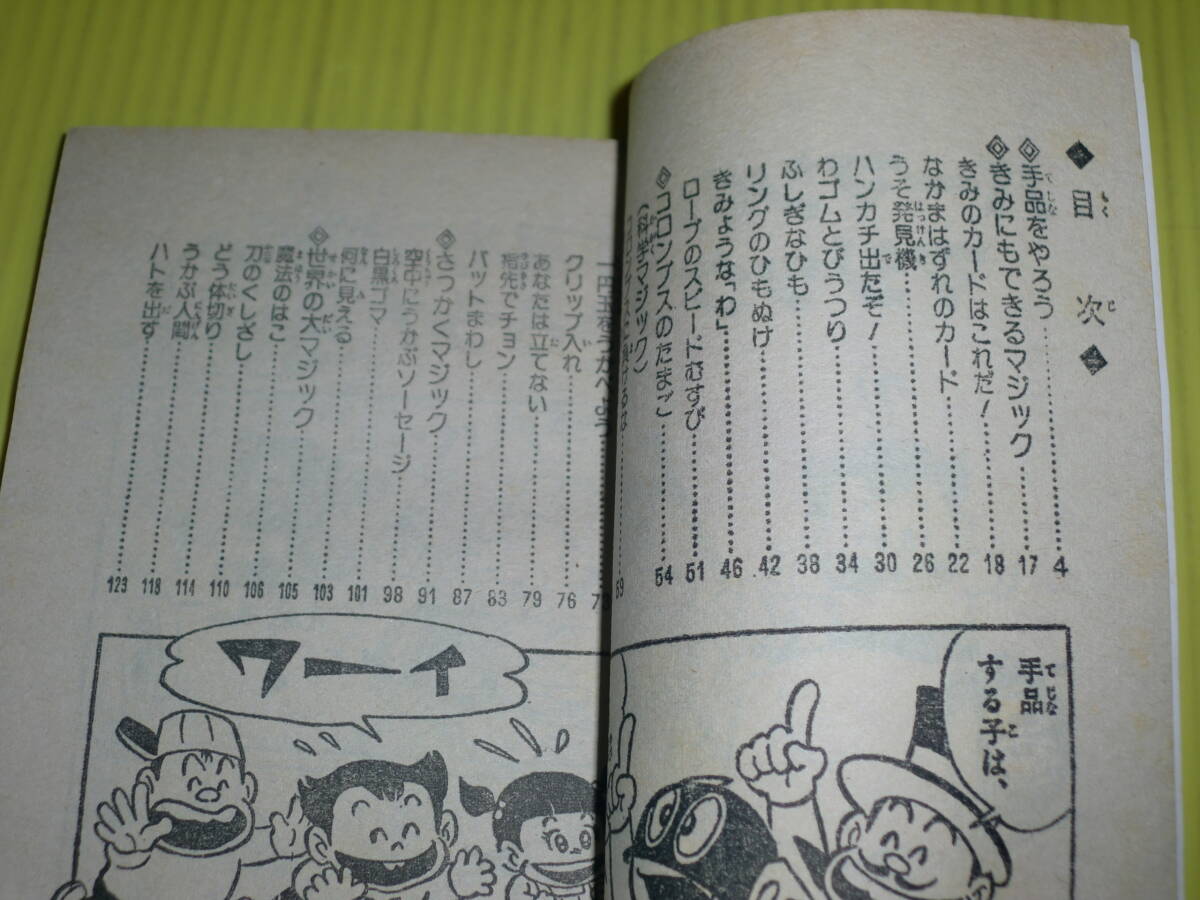 ◆目次◆
◎手品をやろう……4
◎きみにもできるマジック……17
きみのカードはこれだ!……18
なかまはずれのカード……22
うそ発見機……26
ハンカチ出たぞ!……30
わゴムとびうつり……34
ふしぎなひも……38
リングのひもぬけ……42
きみょうな「わ」……46
ロープのスピードむすび……51
◎コロンブスのたまご……54
(科学マジック)
59
一円玉をうかべよう
クリップ入れ……76
あなたは立てない……79
指先でチョン……83
バットまわし……87
◎さっかくマジック……91
空中にうかぶソーセージ……98
白黒ゴマ……101
何に見える……103
◎世界の大マジック……105
魔法のはこ……106
刀のくしざし……110
どう体切り……114
うかぶ人間……118
ハトを出す……123
手品
する子は、
ワーイ